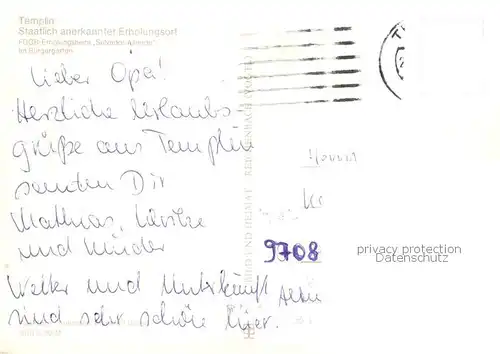 Templin
Staatlich anerkannter Erholungsort
FDGB-Erholungsheim "Salvador Allende"
im Bürgergarten
Lieber Opa!
Herzliche Urlaubs-
grüße aus Templin
senden Dir
Mathias,
und Kinder
Wetter und Unterkunft
sind sehr schön hier.
BILD UND HEIMAT REICHENBACH
9708
privacy protection
Datenschutz